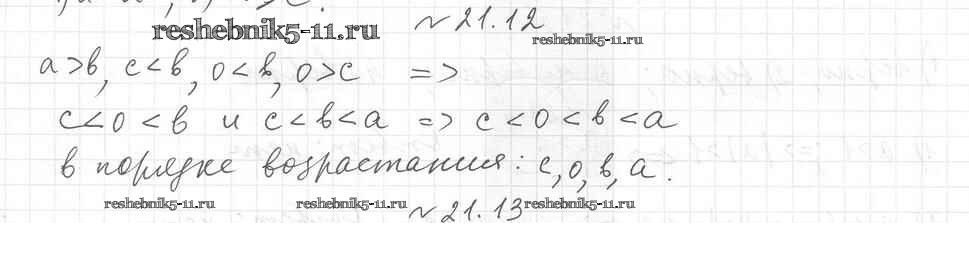 № 21.12
reshebnik5-11.ru
reshebnik5-11.ru
a>b, c<b, 0<b, 0>c =>
c<0<b и c<b<a => c<0<b<a
в порядке возрастания: c, 0, b, a.
reshebnik5-11.ru reshebnik5-11.ru № 21.13 reshebnik5-11.ru